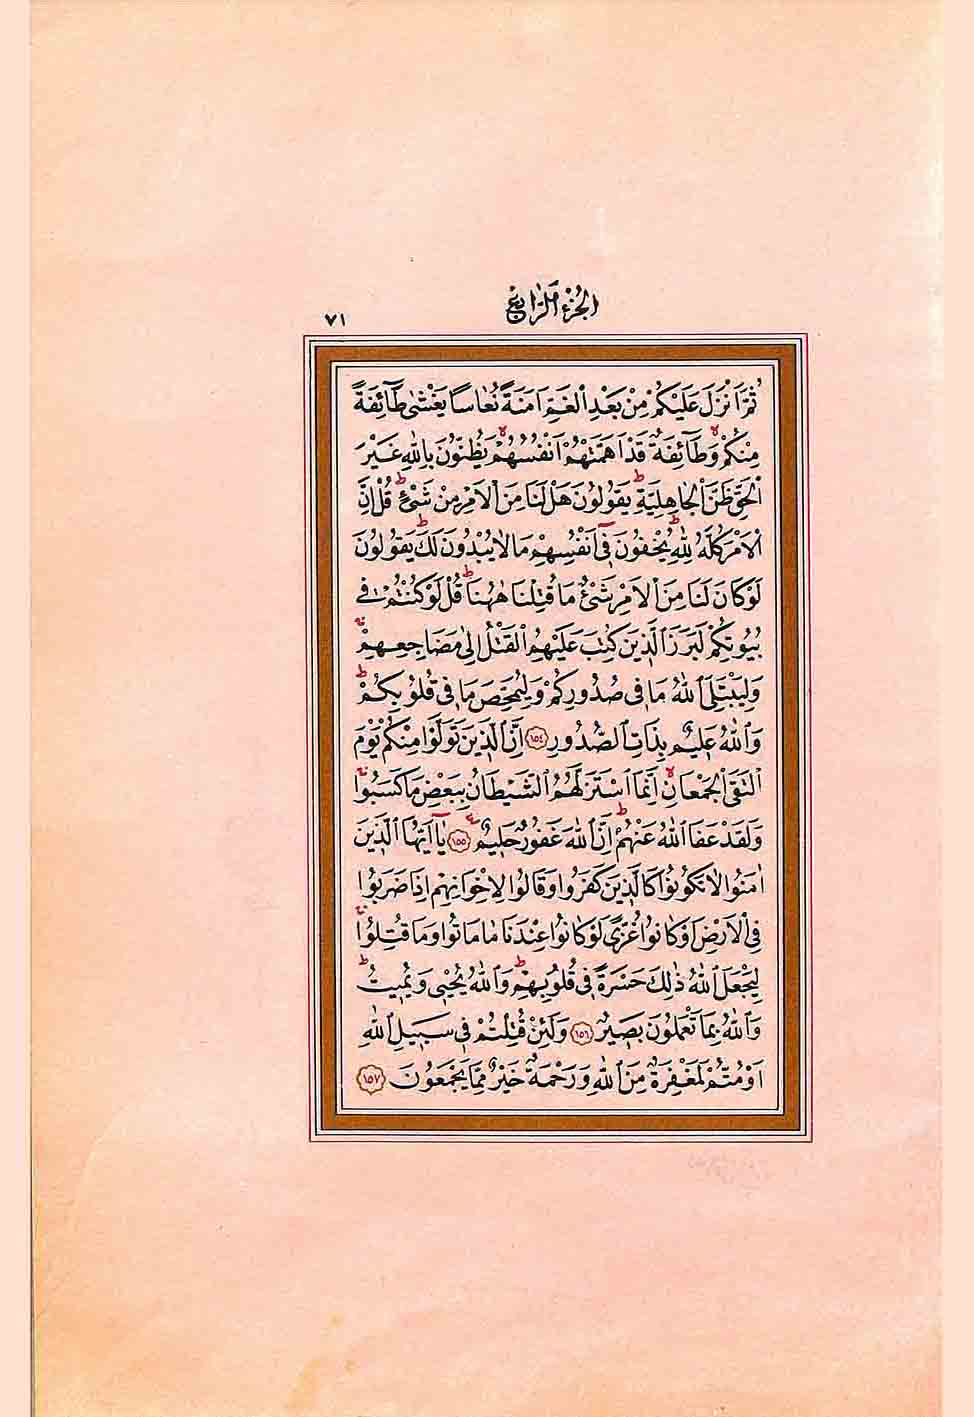 الجزء الرابع
٧١
ثُمَّ اَنْزَلَ عَلَيْكُمْ مِنْ بَعْدِ الْغَمِّ اَمَنَةً نُعَاسًا يَغْشٰى طَٓائِفَةً
مِنْكُمْۙ وَطَٓائِفَةٌ قَدْ اَهَمَّتْهُمْ اَنْفُسُهُمْۙ يَظُنُّونَ بِاللّٰهِ غَيْرَ
الْحَقِّ ظَنَّ الْجَاهِلِيَّةِۜ يَقُولُونَ هَلْ لَنَا مِنَ الْاَمْرِ مِنْ شَىْءٍۜ قُلْ اِنَّ
الْاَمْرَ كُلَّهُ لِلّٰهِۜ يُخْفُونَ فٖٓى اَنْفُسِهِمْ مَا لَا يُبْدُونَ لَكَۜ يَقُولُونَ
لَوْ كَانَ لَنَا مِنَ الْاَمْرِ شَىْءٌ مَا قُتِلْنَا هٰهُنَاۜ قُلْ لَوْ كُنْتُمْ فٖى
بُيُوتِكُمْ لَبَرَزَ الَّذٖينَ كُتِبَ عَلَيْهِمُ الْقَتْلُ اِلٰى مَضَاجِعِهِمْۚ
وَلِيَبْتَلِىَ اللّٰهُ مَا فٖى صُدُورِكُمْ وَلِيُمَحِّصَ مَا فٖى قُلُوبِكُمْۜ
وَاللّٰهُ عَلٖيمٌ بِذَاتِ الصُّدُورِ ﴿١٥٤﴾ اِنَّ الَّذٖينَ تَوَلَّوْا مِنْكُمْ يَوْمَ
الْتَقَى الْجَمْعَانِۙ اِنَّمَا اسْتَزَلَّهُمُ الشَّيْطَانُ بِبَعْضِ مَا كَسَبُواۚ
وَلَقَدْ عَفَا اللّٰهُ عَنْهُمْۜ اِنَّ اللّٰهَ غَفُورٌ حَلٖيمٌ ﴿١٥٥﴾ يَٓا اَيُّهَا الَّذٖينَ
اٰمَنُوا لَا تَكُونُوا كَالَّذٖينَ كَفَرُوا وَقَالُوا لِاِخْوَانِهِمْ اِذَا ضَرَبُوا
فِى الْاَرْضِ اَوْ كَانُوا غُزًّى لَوْ كَانُوا عِنْدَنَا مَا مَاتُوا وَمَا قُتِلُواۚ
لِيَجْعَلَ اللّٰهُ ذٰلِكَ حَسْرَةً فٖى قُلُوبِهِمْۜ وَاللّٰهُ يُحْيٖى وَيُمٖيتُۜ
وَاللّٰهُ بِمَا تَعْمَلُونَ بَصٖيرٌ ﴿١٥٦﴾ وَلَئِنْ قُتِلْتُمْ فٖى سَبٖيلِ اللّٰهِ
اَوْ مُتُّمْ لَمَغْفِرَةٌ مِنَ اللّٰهِ وَرَحْمَةٌ خَيْرٌ مِمَّا يَجْمَعُونَ ﴿١٥٧﴾